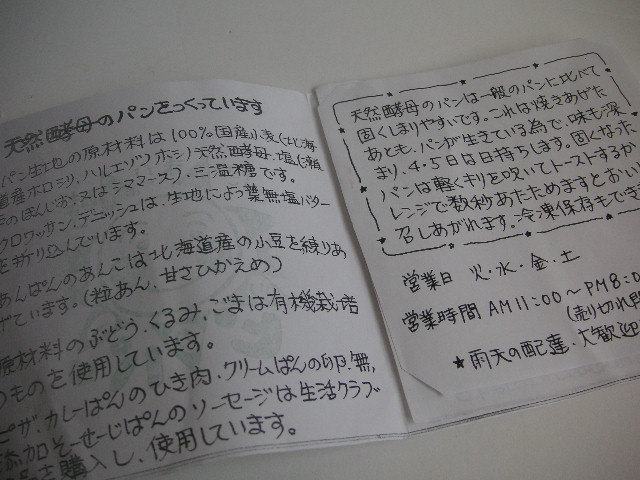 天然酵母のパンをつくっています
パン生地の原材料は100%国産小麦(北海
道産ホロシリ、ハルエゾツ ホシ)天然酵母、塩(
のほんじお、又はシママース)、三温糖です。
クロワッサン、デニッシュは、生地に よつ葉無塩バター
を折り込んでいます。
あんぱんのあんこは北海道産の小豆を練りあ
げています。(粒あん、甘さひかえめ)
原材料のぶどう、くるみ、ごまは有機栽培
のものを使用しています。
ピザ、カレーぱんのひき肉、クリームぱんの卵、無
添加そーせーじぱんのソーセージは生活クラブ
購入し、使用しています。
天然酵母のパンは一般のパンに比べて
固くしまりやすいです。これは焼きあげた
あとも、パンが生きている為で、味も深
まり、4・5日は日持ちします。固くなった
パンは軽くキリを吹いてトーストするか
レンジで数秒あたためますとおい
召しあがれます。冷凍保存もでき
営業日 火・水・金・土
営業時間 AM11:00〜PM8:0
(売り切れ
★雨天の配達、大歓迎